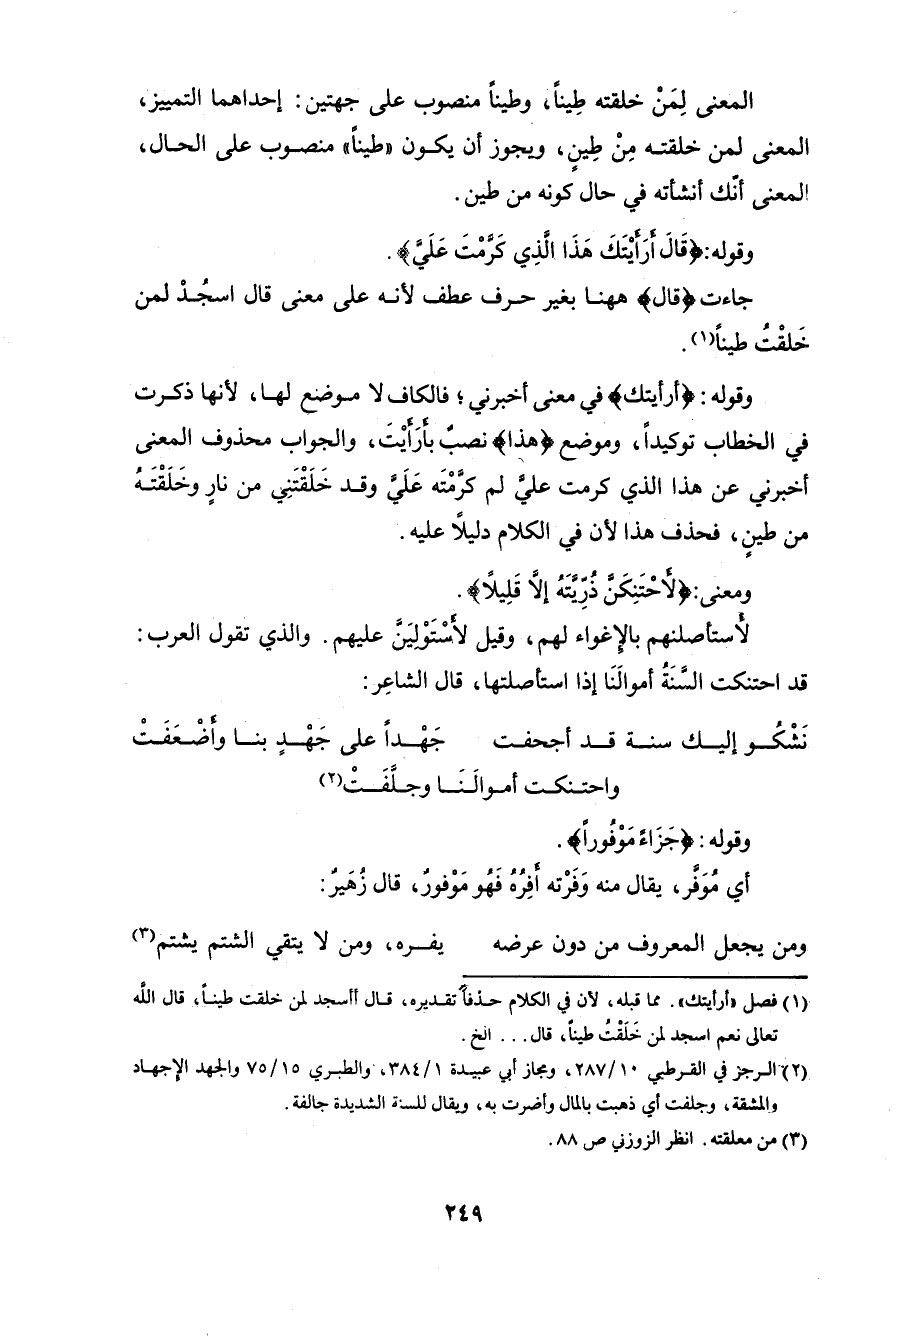 المعنى لِمَنْ خلقته طِيناً، وطيناً منصوب على جهتين: إحداهما التمييز،
المعنى لمن خلقتـه مِنْ طِينٍ، ويجوز أن يكـون «طيناً» منصـوب على الحـال،
المعنى أنّك أنشأته في حال كونه من طين.
وقوله: ﴿قَالَ أَرَأَيْتَكَ هَذَا الَّذِي كَرَّمْتَ عَلَيَّ﴾.
جاءت ﴿قال﴾ ههنـا بغير حـرف عطف لأنـه على معنى قال اسجُدْ لمن
خَلقْتُ طيناً(١).
وقوله: ﴿أرأيتك﴾ في معنى أخبرني؛ فالكاف لا مـوضع لهـا، لأنها ذكـرت
في الخطاب توكيداً، وموضع ﴿هذا﴾ نصبٌ بأَرَأَيْتَ، والجواب محذوف المعنى
أخبرني عن هذا الذي كرمت عليَّ لم كرَّمْتَه عَلَيَّ وقـد خَلَقْتَنِي من نارٍ وخَلَقْتَـهُ
من طينٍ، فحذف هذا لأن في الكلام دليلًا عليه.
ومعنى: ﴿لَأَحْتَنِكَنَّ ذُرِّيَّتَهُ إلَّا قَلِيلًا﴾.
لأستأصلنهم بالإغواء لهم، وقيل لأَسْتَوْلِيَنَّ عليهم. والذي تقول العرب:
قد احتنكت السَّنَةُ أموالَنَا إذا استأصلتها، قال الشاعِر:
نَشْكُـو إليـك سنـة قـد أجحفت جَهْـداً على جَهْـدٍ بنـا وأَضْعَفَتْ
واحتـنكـت أمـوالَـنَـا وجـلَّفَـتْ(٢)
وقوله: ﴿جَزَاءً مَوْفُوراً﴾.
أي مُوَفَّر، يقال منه وَفَرْته أَفِرُهُ فَهُو مَوْفورٌ، قال زُهَيرٌ:
ومن يجعل المعروف من دون عرضه يفـره، ومن لا يتقي الشتم يشتم(٣)
(١) فصل «أرأيتك». مما قبله، لأن في الكلام حـذفاً تقديره، قـال أأسجد لمن خلقت طينـاً، قال الله
تعالى نعم اسجد لمن خَلَقْتُ طيناً، قال... الخ.
(٢) الـرجز في القـرطبي ١٠/٢٨٧، ومجاز أبي عبيدة ١/٣٨٤، والطبري ١٥/٧٥ والجهد الإجهـاد
والمشقة، وجلفت أي ذهبت بالمال وأضرت به، ويقال للسنة الشديدة جالفة.
(٣) من معلقته. انظر الزوزني ص ٨٨.
٢٤٩